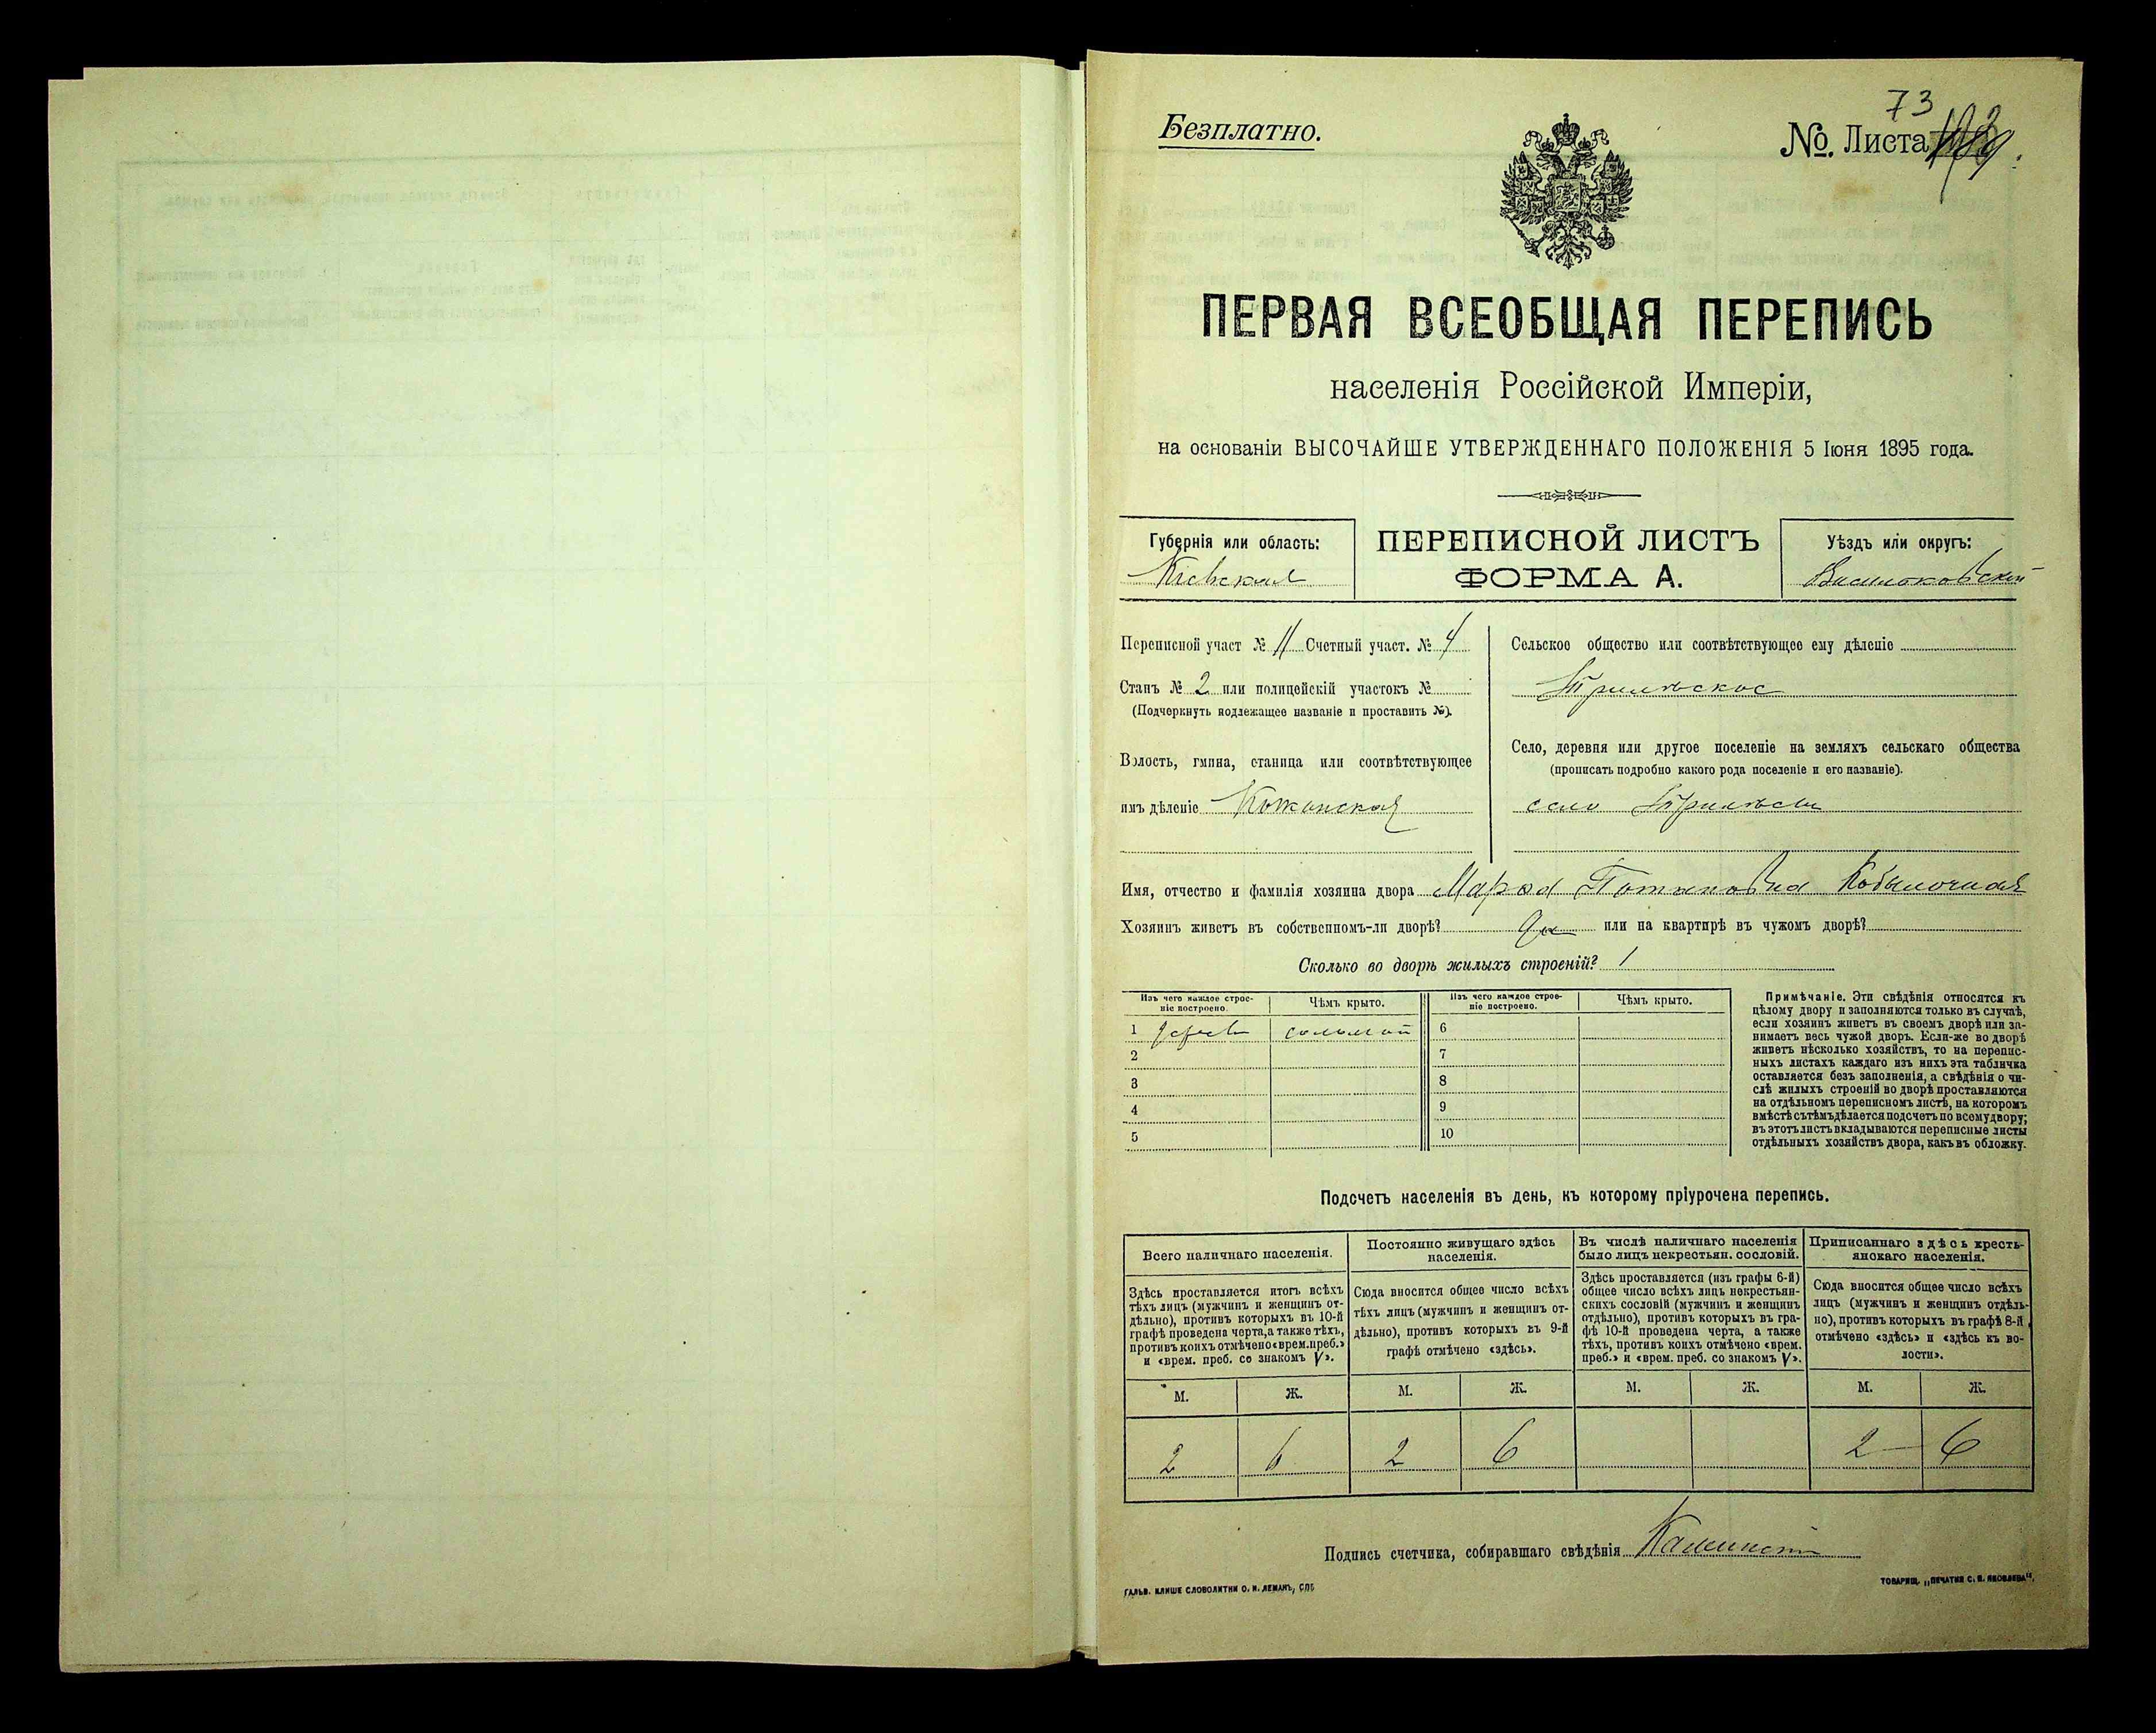 73
Безплатно.
№. Листа
ПЕРВАЯ ВСЕОБЩАЯ ПЕРЕПИСЬ
населенія Россійской Имперіи,
на основаніи ВЫСОЧАЙШЕ УТВЕРЖДЕННАГО ПОЛОЖЕНІЯ 5 Іюня 1895 года.
Губернія или область:
Кіевская
ПЕРЕПИСНОЙ ЛИСТЪ
ФОРМА А.
Уѣздъ или округъ:
Васильковскій
Переписной участ № 11 Счетный участ. № 4
Станъ № 2 или полицейскій участокъ №
(Подчеркнуть подлежащее названіе и проставить №).
Волость, гмина, станица или соотвѣтствующее
имъ дѣленіе Кожанская
Сельское общество или соотвѣтствующее ему дѣленіе
Трилѣское
Село, деревня или другое поселеніе на земляхъ сельскаго общества
(прописать подробно какого рода поселеніе и его названіе).
село Трилѣсы
Имя, отчество и фамилія хозяина двора Потаповна
Хозяинъ живетъ въ собственномъ-ли дворѣ? Да или на квартирѣ въ чужомъ дворѣ?
Сколько во дворѣ жилыхъ строеній? 1
Изъ чего каждое строе-
ніе построено.
Чѣмъ крыто.
Изъ чего каждое строе-
ніе построено.
Чѣмъ крыто.
1 дерев соломой 6
2 7
3 8
4 9
5 10
Примѣчаніе. Эти свѣдѣнія относятся къ
цѣлому двору и заполняются только въ случаѣ,
если хозяинъ живетъ въ своемъ дворѣ или за-
нимаетъ весь чужой дворъ. Если-же во дворѣ
живетъ нѣсколько хозяйствъ, то на перепис-
ныхъ листахъ каждаго изъ нихъ эта табличка
оставляется безъ заполненія, а свѣдѣнія о чи-
слѣ жилыхъ строеній во дворѣ проставляются
на отдѣльномъ переписномъ листѣ, на которомъ
вмѣстѣ съ тѣмъ дѣлается подсчетъ по всему двору;
въ этотъ листъ вкладываются переписные листы
отдѣльныхъ хозяйствъ двора, какъ въ обложку.
Подсчетъ населенія въ день, къ которому пріурочена перепись.
Всего наличнаго населенія.
Здѣсь проставляется итогъ всѣхъ
тѣхъ лицъ (мужчинъ и женщинъ от-
дѣльно), противъ которыхъ въ 10-й
графѣ проведена черта, а также тѣхъ,
противъ коихъ отмѣчено «врем. преб.»
и «врем. преб. со знакомъ V».
Постоянно живущаго здѣсь
населенія.
Сюда вносится общее число всѣхъ
тѣхъ лицъ (мужчинъ и женщинъ от-
дѣльно), противъ которыхъ въ 9-й
графѣ отмѣчено «здѣсь».
Въ числѣ наличнаго населенія
было лицъ некрестьян. сословій.
Здѣсь проставляется (изъ графы 6-й)
общее число всѣхъ лицъ некрестьян-
скихъ сословій (мужчинъ и женщинъ
отдѣльно), противъ которыхъ въ гра-
фѣ 10-й проведена черта, а также
тѣхъ, противъ коихъ отмѣчено «врем.
преб.» и «врем. преб. со знакомъ V».
Приписаннаго здѣсь кресть-
янскаго населенія.
Сюда вносится общее число всѣхъ
лицъ (мужчинъ и женщинъ отдѣль-
но), противъ которыхъ въ графѣ 8-й
отмѣчено «здѣсь» и «здѣсь къ во-
лости».
М. Ж. М. Ж. М. Ж. М. Ж.
2 6 2 6 2 6
Подпись счетчика, собиравшаго свѣдѣнія Каминскій
ГАЛЬВ. КЛИШЕ СЛОВОЛИТНИ О. И. ЛЕМАНЪ, СПБ
ТОВАРИЩ. „ПЕЧАТНЯ С. П. ЯКОВЛЕВА“.